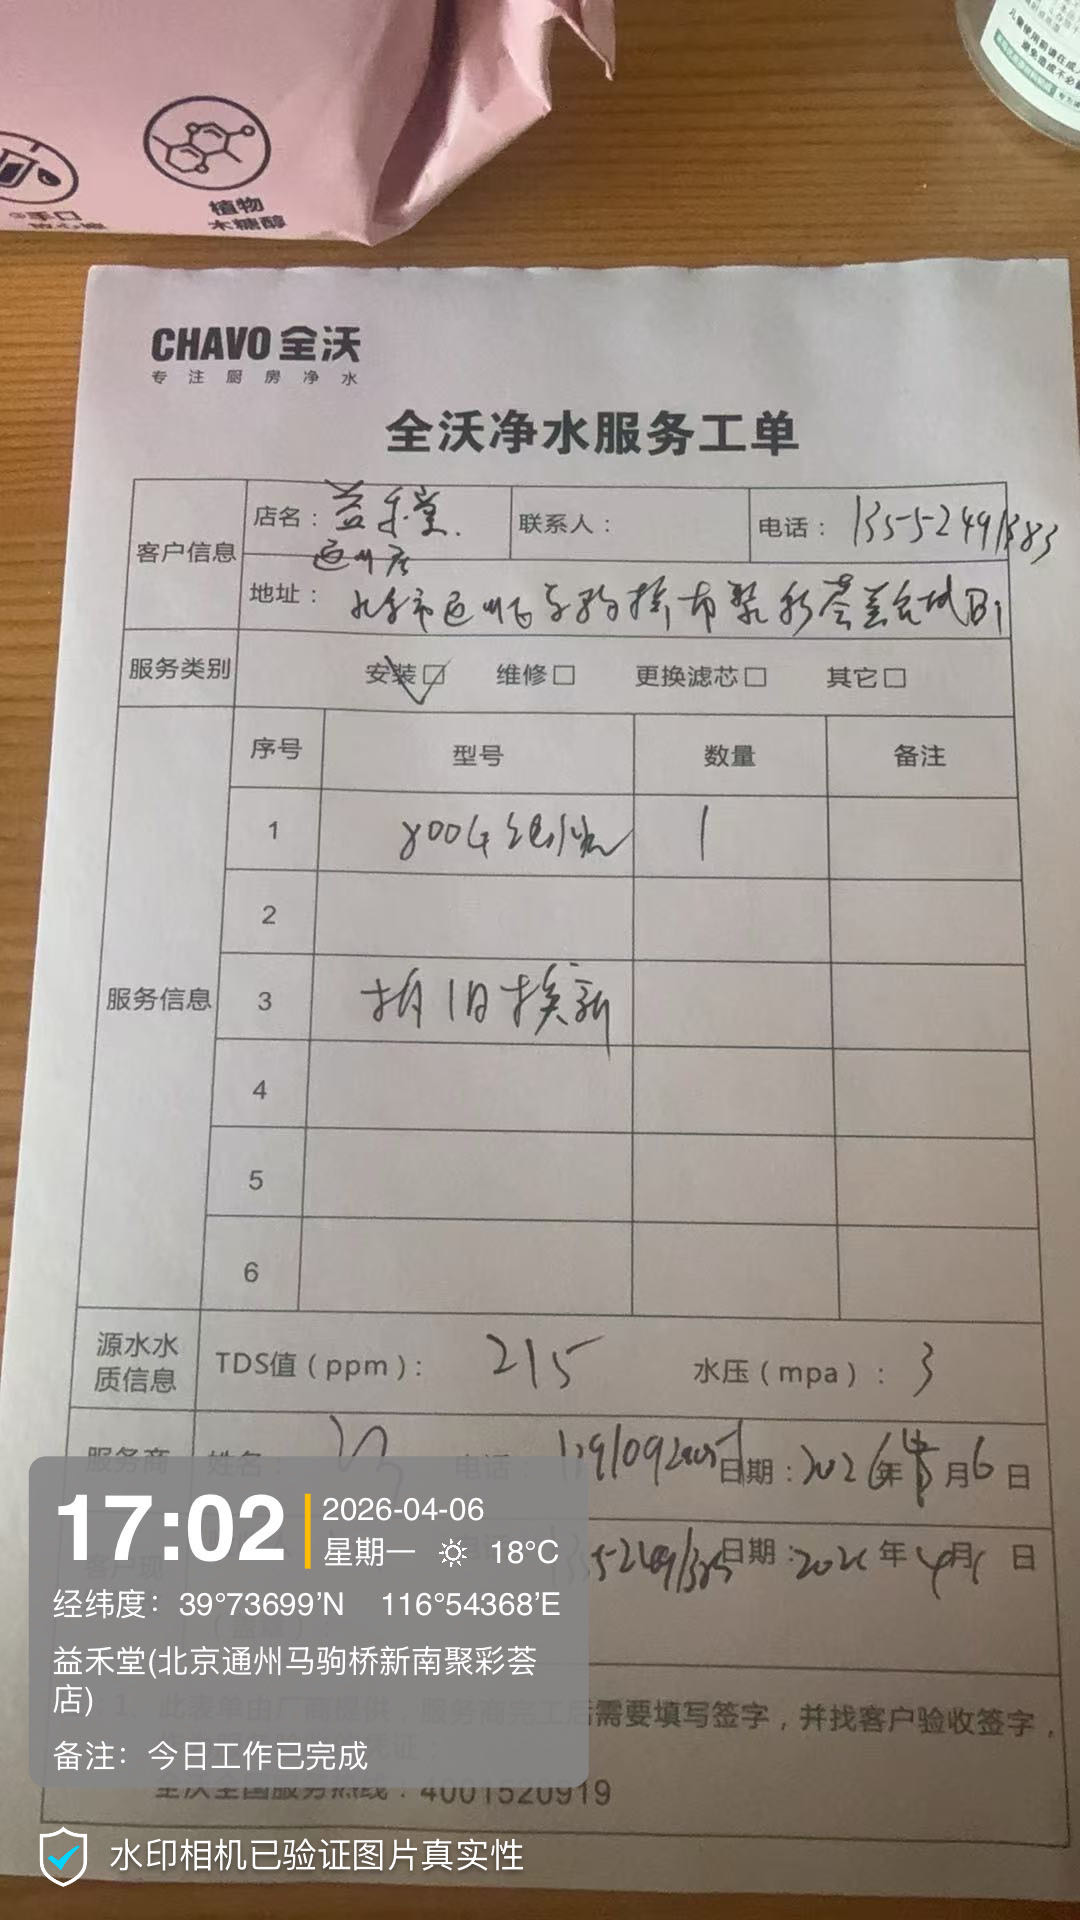 植物
木糖醇
CHAVO 全沃
专注厨房净水
全沃净水服务工单
客户信息
店名：益禾堂
联系人：
电话：13552491383
通州店
地址：北京市通州区马驹桥
服务类别
安装☑ 维修□ 更换滤芯□ 其它□
服务信息
序号 型号 数量 备注
1 800G 1
2
3 拍旧换新
4
5
6
源水水质信息
TDS值（ppm）： 215 水压（mpa）： 3
服务商 姓名： 电话： 日期：2026年4月6日
日期： 年4月 日
17:02
2026-04-06
星期一 18°C
经纬度：39°73699'N 116°54368'E
益禾堂(北京通州马驹桥新南聚彩荟
店)
备注：今日工作已完成
1、此表单由厂商提供，服务商完工后需要填写签字，并找客户验收签字，
全沃全国服务热线：4001520919
水印相机已验证图片真实性